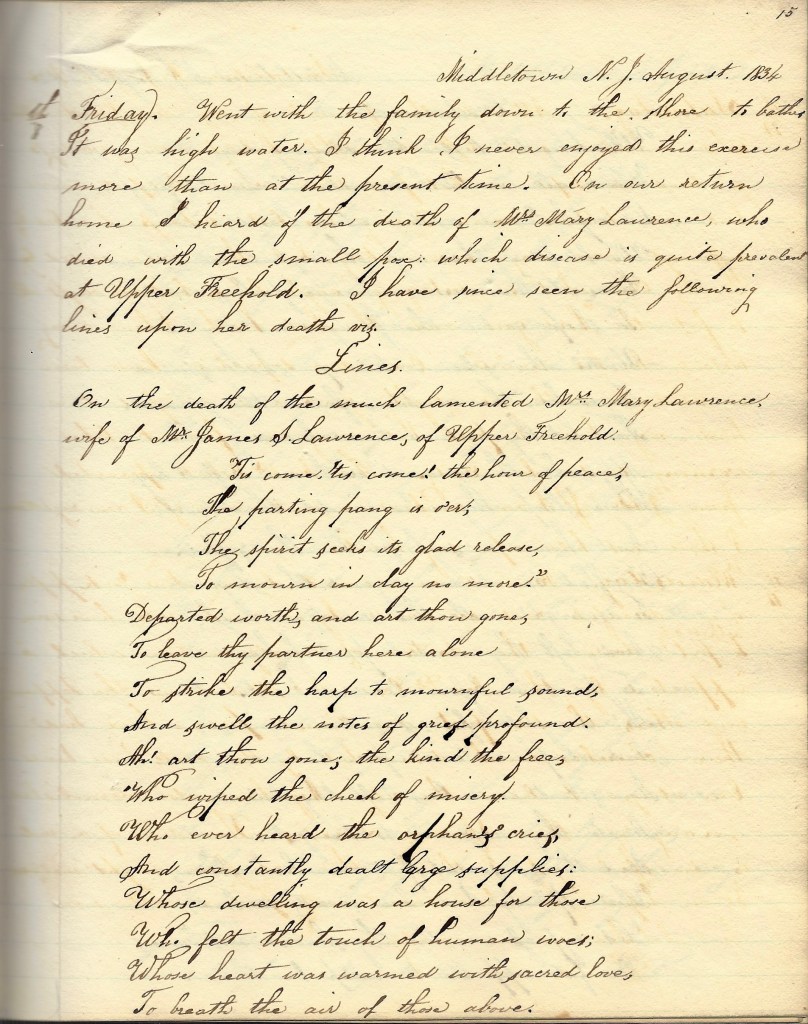 15
Middletown N. J. August. 1834
Friday. Went with the family down to the shore to bathe
It was high water. I think I never enjoyed this exercise
more than at the present time. On our return
home I heard of the death of Mrs Mary Lawrence, who
died with the small pox: which disease is quite prevalent
at Upper Freehold. I have since seen the following
lines upon her death viz.
Lines.
On the death of the much lamented Mrs. Mary Lawrence,
wife of Mr. James S. Lawrence, of Upper Freehold.
'Tis come, 'tis come! the hour of peace,
The parting pang is o'er,
The spirit seeks its glad release,
To mourn in clay no more."
Departed worth, and art thou gone,
To leave thy partner here alone
To strike the harp to mournful sound,
And swell the notes of grief profound.
Ah! art thou gone, the kind the free,
Who wiped the cheek of misery.
Who ever heard the orphan's cries,
And constantly dealt large supplies:
Whose dwelling was a house for those
Who felt the touch of human woes;
Whose heart was warmed with sacred love,
To breath the air of those above.